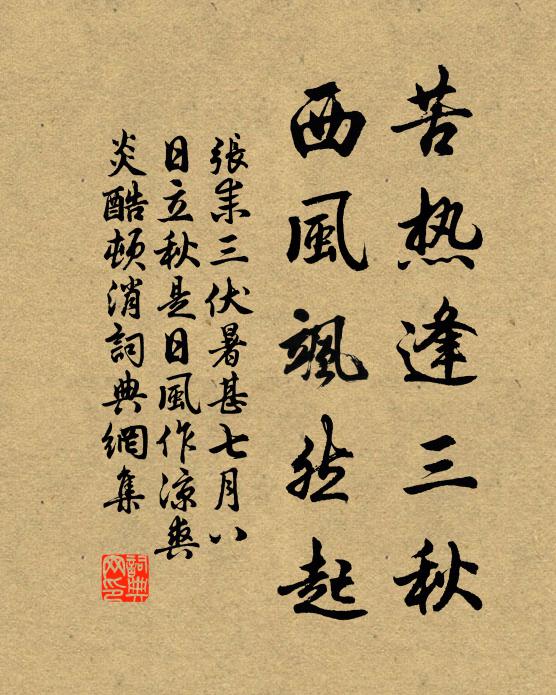 苦热逢三秋
西風颯然起
張耒三伏暑甚七月八
日立秋是日風作凉爽
炎酷頓消詞典網集
詞典
网印